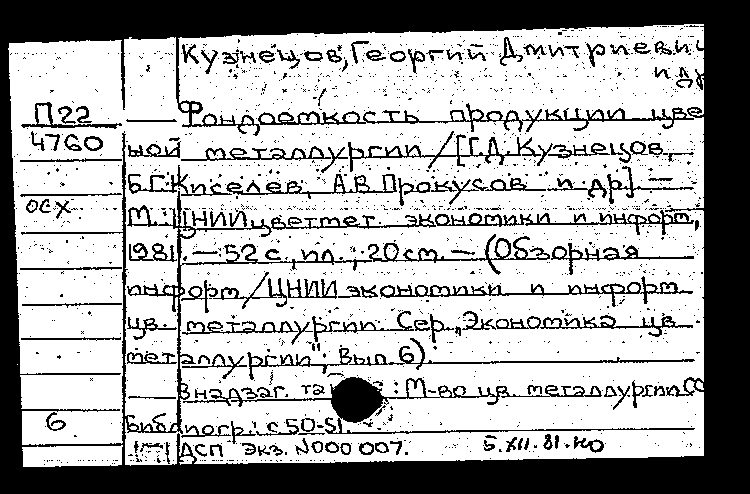 Кузнецов, Георгий Дмитриеви
и др
П22 Фондоемкость продукции цве
4760 ной металлургии / [Г.Д. Кузнецов,
Б.Г. Киселев, А.В. Прокусов и др.] —
осх М.: ЦНИИцветмет экономики и информ.,
1981. — 52 с., ил.; 20 см. — (Обзорная
информ / ЦНИИ экономики и информ
цв. металлургии. Сер. „Экономика цв.
металлургии"; Вып. 6).
В надзаг. : М-во цв. металлургии СС
6 Библиогр.: с 50-51.
ДСП Экз. N000 007. 5.XII.81.